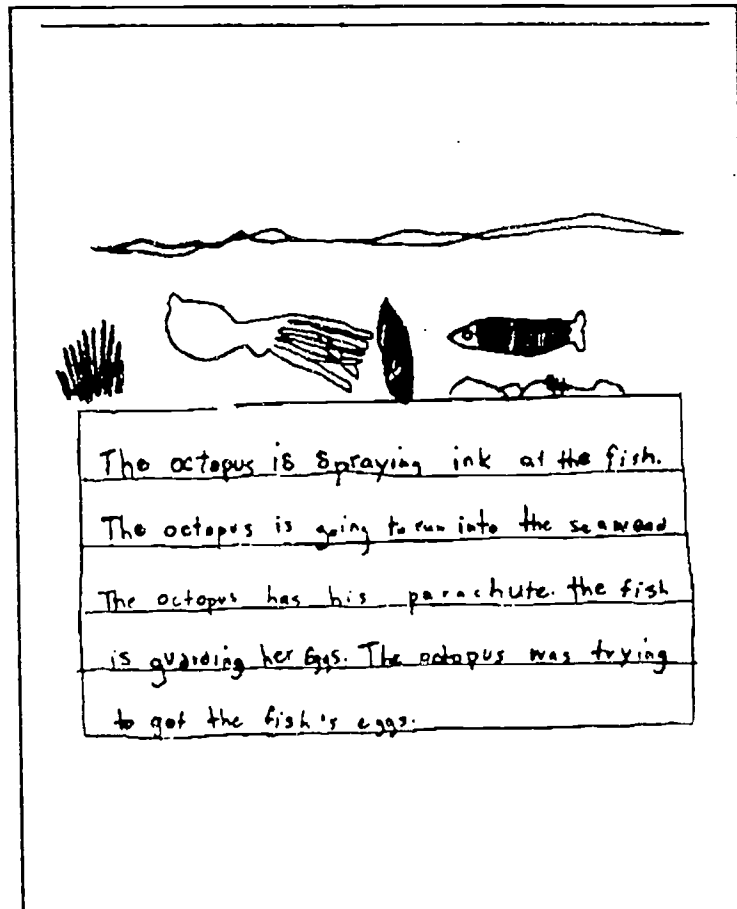 The octopus is Spraying ink at the fish.
The octopus is going to run into the seaweed
The octopus has his parachute. the fish
is guarding her Eggs. The octopus was trying
to get the fish's eggs.